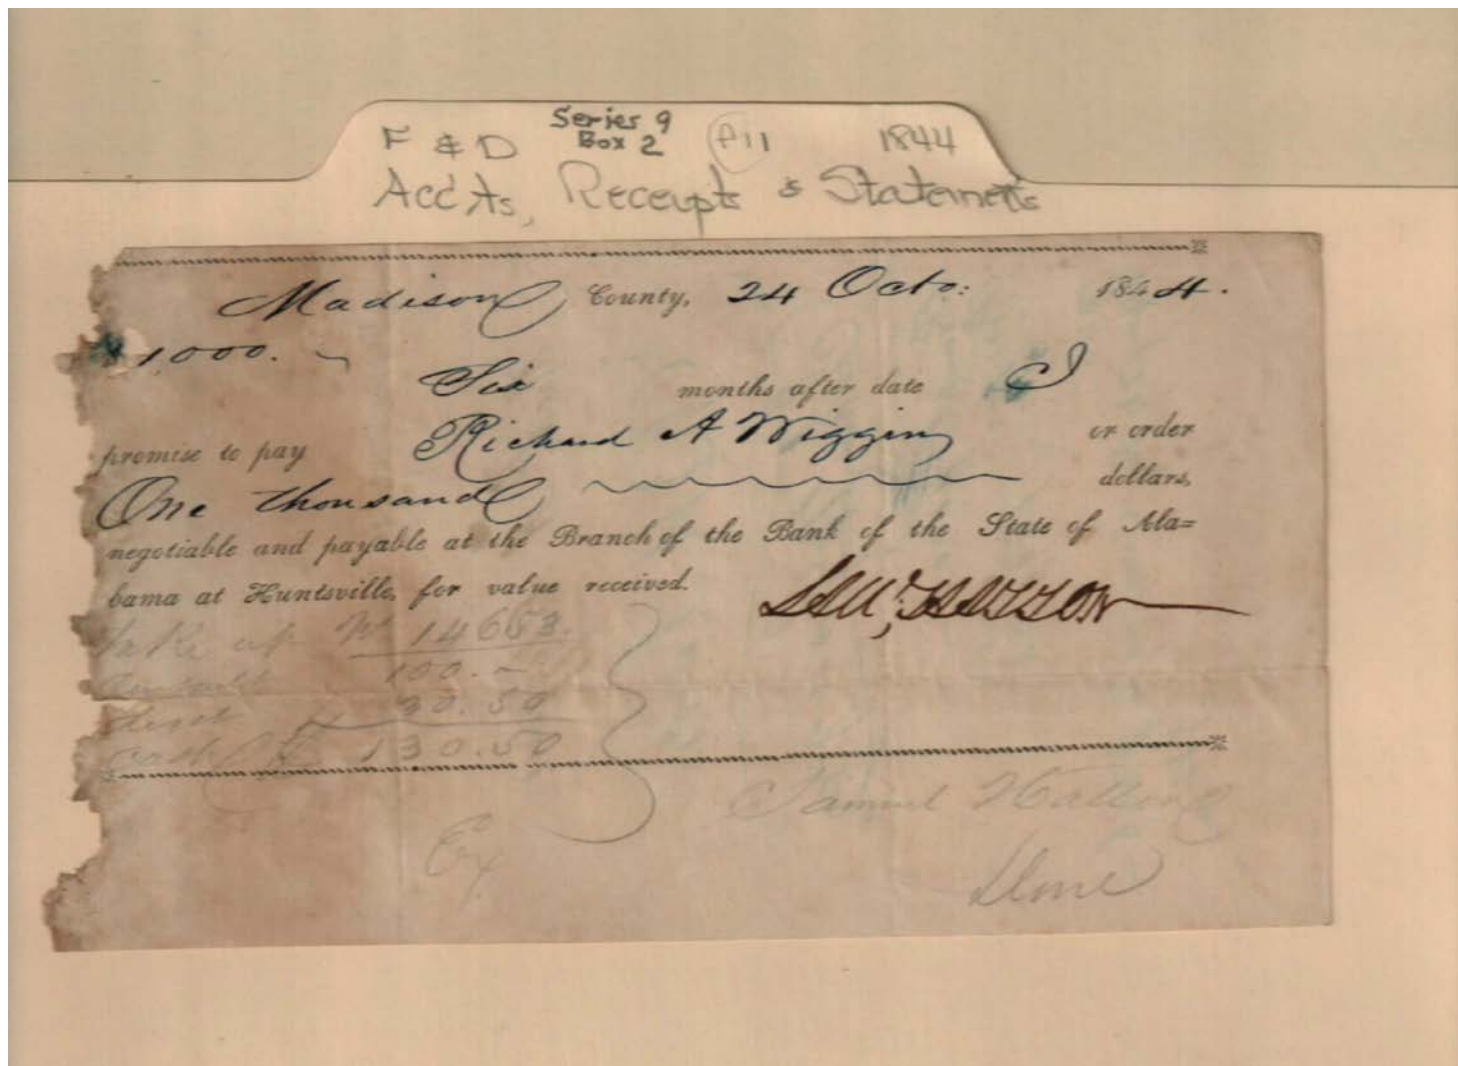 Series 9
F & D Box 2 P11 1844
Acc'ts, Receipts & Statements
Madison County, 24 Octo: 1844.
$1000.
Six months after date I
promise to pay Richard A Wiggins or order
One thousand dollars,
negotiable and payable at the Branch of the Bank of the State of Ala=
bama at Huntsville, for value received.
14653.
100.-
30.50
130.50
Samuel Hatton
Ex
Done